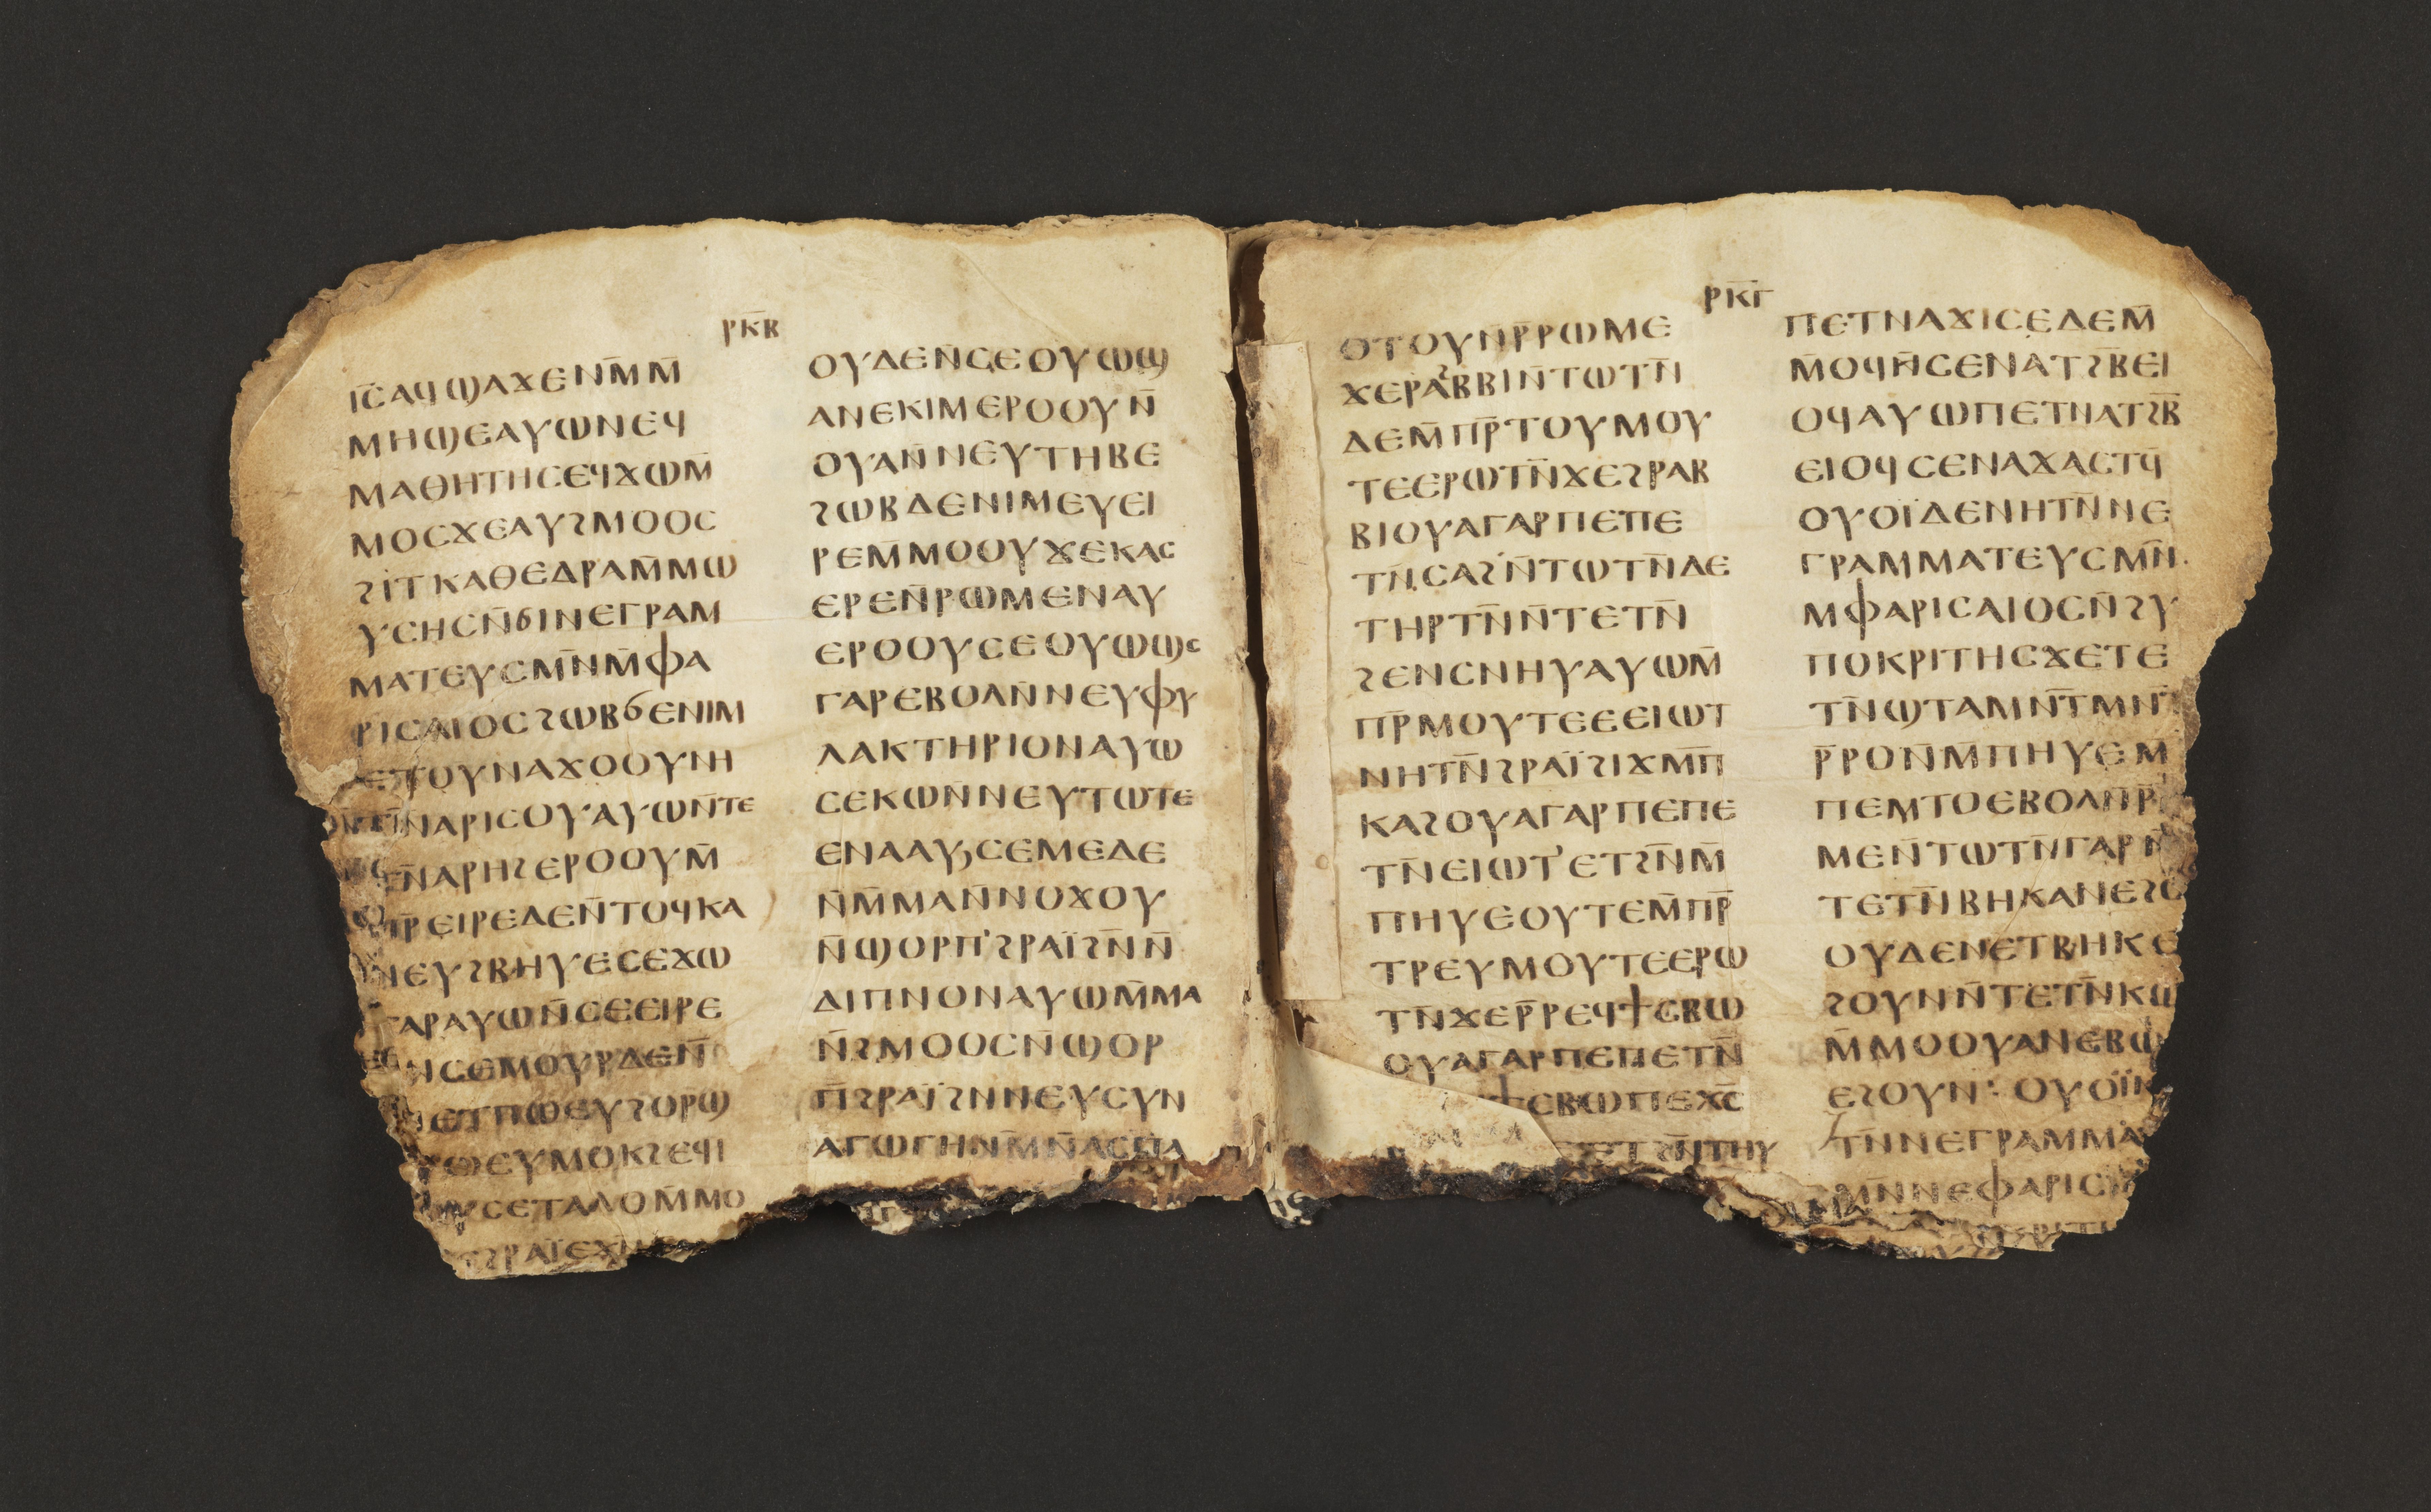 ⲣⲕ̅ⲃ
ⲓ̅ⲥ̅ⲁϥϣⲁϫⲉⲛⲙ̅ⲙ̅
ⲙⲏϣⲉⲁⲩⲱⲛⲉϥ
ⲙⲁⲑⲏⲧⲏⲥⲉϥϫⲱⲙ̅
ⲙⲟⲥϫⲉⲁⲩϩⲙⲟⲟⲥ
ϩⲓⲧⲕⲁⲑⲉⲇⲣⲁⲙ̅ⲙⲱ
ⲩⲥⲏⲥⲛ̅ϭⲓⲛⲉⲅⲣⲁⲙ
ⲙⲁⲧⲉⲩⲥⲙⲛ̅ⲙ̅ⲫⲁ
ⲣⲓⲥⲁⲓⲟⲥϩⲱⲃϭⲉⲛⲓⲙ
ⲉⲧⲟⲩⲛⲁϫⲟⲟⲩⲛⲏ
ⲧⲛ̅ⲁⲣⲓⲥⲟⲩⲁⲩⲱⲛ̅ⲧⲉ
ⲧⲛ̅ⲁⲣⲏϩⲉⲣⲟⲟⲩⲙ̅
ⲡⲣ̅ⲉⲓⲣⲉⲇⲉⲛ̅ⲧⲟϥⲕⲁ
ⲛⲉⲩϩⲃⲏⲩⲉⲥⲉϫⲱ
ⲅⲁⲣⲁⲩⲱⲛ̅ⲥⲉⲉⲓⲣⲉ
ⲁⲛⲥⲉⲙⲟⲩⲣⲇⲉⲛ̅
ϩⲉⲛⲉⲧⲡⲱⲉⲩϩⲟⲣϣ
ⲉⲩⲙⲟⲕϩⲉϥⲓ
ⲥⲉⲧⲁⲗⲟⲙ̅ⲙⲟ
ⲉϩⲣⲁⲓ̈ⲉϫ
ⲟⲩⲇⲉⲛ̅ⲥⲉⲟⲩⲱϣ
ⲁⲛⲉⲕⲓⲙⲉⲣⲟⲟⲩⲛ̅
ⲟⲩⲁⲛ̅ⲛⲉⲩⲧⲏⲃⲉ
ϩⲱⲃⲇⲉⲛⲓⲙⲉⲩⲉⲓ
ⲣⲉⲙ̅ⲙⲟⲟⲩϫⲉⲕⲁⲥ
ⲉⲣⲉⲛ̅ⲣⲱⲙⲉⲛⲁⲩ
ⲉⲣⲟⲟⲩⲥⲉⲟⲩⲱϣⲥ
ⲅⲁⲣⲉⲃⲟⲗⲛ̅ⲛⲉⲩⲫⲩ
ⲗⲁⲕⲧⲏⲣⲓⲟⲛⲁⲩⲱ
ⲥⲉⲕⲱⲛ̅ⲛⲉⲩⲧⲱⲧⲉ
ⲉⲛⲁⲁⲩ,ⲥⲉⲙⲉⲇⲉ
ⲛ̅ⲙ̅ⲙⲁⲛ̅ⲛⲟϫⲟⲩ
ⲛ̅ϣⲟⲣⲡ'ϩⲣⲁⲓ̈ϩⲛ̅ⲛ̅
ⲇⲓⲡⲛⲟⲛⲁⲩⲱⲙ̅ⲙⲁ
ⲛ̅ϩⲙⲟⲟⲥⲛ̅ϣⲟⲣ
ⲡ̅ϩⲣⲁⲓ̈ϩⲛⲛⲉⲩⲥⲩⲛ
ⲁⲅⲱⲅⲏⲛⲙ̅ⲛ̅ⲁⲥⲡⲁ
ⲣⲕ̅ⲅ
ⲟⲧⲟⲩⲛ̅ⲣ̅ⲣⲱⲙⲉ
ϫⲉϩⲣⲁⲃⲃⲓⲛ̅ⲧⲱⲧⲛ̅
ⲇⲉⲙ̅ⲡⲣ̅ⲧⲟⲩⲙⲟⲩ
ⲧⲉⲉⲣⲱⲧⲛ̅ϫⲉϩⲣⲁⲃ
ⲃⲓⲟⲩⲁⲅⲁⲣⲡⲉⲡⲉ
ⲧⲛ̅ⲥⲁϩⲛ̅ⲧⲱⲧⲛ̅ⲇⲉ
ⲧⲏⲣⲧⲛ̅ⲛ̅ⲧⲉⲧⲛ̅
ϩⲉⲛⲥⲛⲏⲩⲁⲩⲱⲙ̅
ⲡⲣ̅ⲙⲟⲩⲧⲉⲉⲉⲓⲱⲧ
ⲛⲏⲧⲛ̅ϩⲣⲁⲓ̈ϩⲓϫⲙ̅ⲡ
ⲕⲁϩⲟⲩⲁⲅⲁⲣⲡⲉⲡⲉ
ⲧⲛ̅ⲉⲓⲱⲧ'ⲉⲧϩⲛ̅ⲙ̅
ⲡⲏⲩⲉⲟⲩⲧⲉⲙ̅ⲡⲣ̅
ⲧⲣⲉⲩⲙⲟⲩⲧⲉⲉⲣⲱ
ⲧⲛ̅ϫⲉⲣ̅ⲣⲉϥϯⲥⲃⲱ
ⲟⲩⲁⲅⲁⲣⲡⲉⲡⲉⲧⲛ̅
ϯⲥⲃⲱⲡⲉⲭ̅ⲥ̅
ⲉⲧϩⲛ̅ⲧⲏⲩ
ⲡⲉⲧⲛⲁϫⲓⲥⲉⲇⲉⲙ̅
ⲙ̅ⲟϥⲛ̅ⲥⲉⲛⲁⲧϩⲃ̅ⲉⲓ
ⲟϥⲁⲩⲱⲡⲉⲧⲛⲁⲧϩⲃ̅
ⲉⲓⲟϥⲥⲉⲛⲁϫⲁⲥⲧϥ̅
ⲟⲩⲟⲓ̈ⲇⲉⲛⲏⲧⲛ̅ⲛⲉ
ⲅⲣⲁⲙⲙⲁⲧⲉⲩⲥⲙⲛ̅
ⲙⲫⲁⲣⲓⲥⲁⲓⲟⲥⲛ̅ϩⲩ
ⲡⲟⲕⲣⲓⲧⲏⲥϫⲉⲧⲉ
ⲧⲛ̅ϣⲧⲁⲙⲛ̅ⲧⲙⲛ̅ⲧ
ⲣ̅ⲣⲟⲛ̅ⲙ̅ⲡⲏⲩⲉⲙ̅
ⲡⲉⲙⲧⲟⲉⲃⲟⲗⲛ̅ⲣ̅
ⲙⲉⲛ̅ⲧⲱⲧⲛ̅ⲅⲁⲣⲛ̅
ⲧⲉⲧⲛ̅ⲃⲏⲕⲁⲛⲉϩⲟ
ⲟⲩⲇⲉⲛⲉⲧⲃⲏⲕⲉ
ϩⲟⲩⲛⲛ̅ⲧⲉⲧⲛ̅ⲕⲱ
ⲙ̅ⲙⲟⲟⲩⲁⲛⲉⲃⲱ
ⲉϩⲟⲩⲛ⁚ⲟⲩⲟⲓ̈ⲛ
ⲧⲛ̅ⲛⲉⲅⲣⲁⲙⲙⲁ
ⲙⲛ̅ⲛⲉⲫⲁⲣⲓⲥ